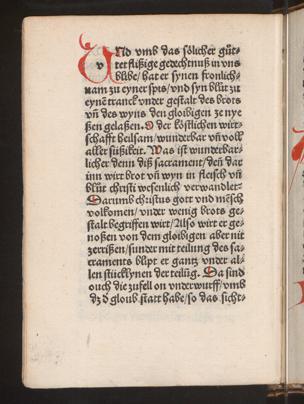 Vnd vmb das sölicher güt-
v tet flißige gedechtnuß in vns
blibe/hat er synen fronlich-
nam zu eyner spis/vnd syn blůt zu
eynē tranck vnder gestalt des brots
vñ des wyns den gloibigen ze nye
ßen gelaßen. O der köstlichen wirt-
schafft heilsam/wunderbar vñ voll
aller süßikeit. Was ist wunderbar-
licher denn diß sacrament/deñ dar
inn wirt brot vñ wyn in fleisch vñ
blůt christi wesenlich verwandlet-
Darumb christus gott vnd mēsch
volkomen/vnder wenig brots ge-
stalt begriffen wirt/Also wirt er ge-
noßen von dem gloibigen aber nit
zerrißen/sunder mit teilung des sa-
craments blipt er gantz vnder al-
len stücklynen der teilūg. Da sind
ouch die zufell on vnderwurff/vmb
dz d gloub statt habe/so das sicht-